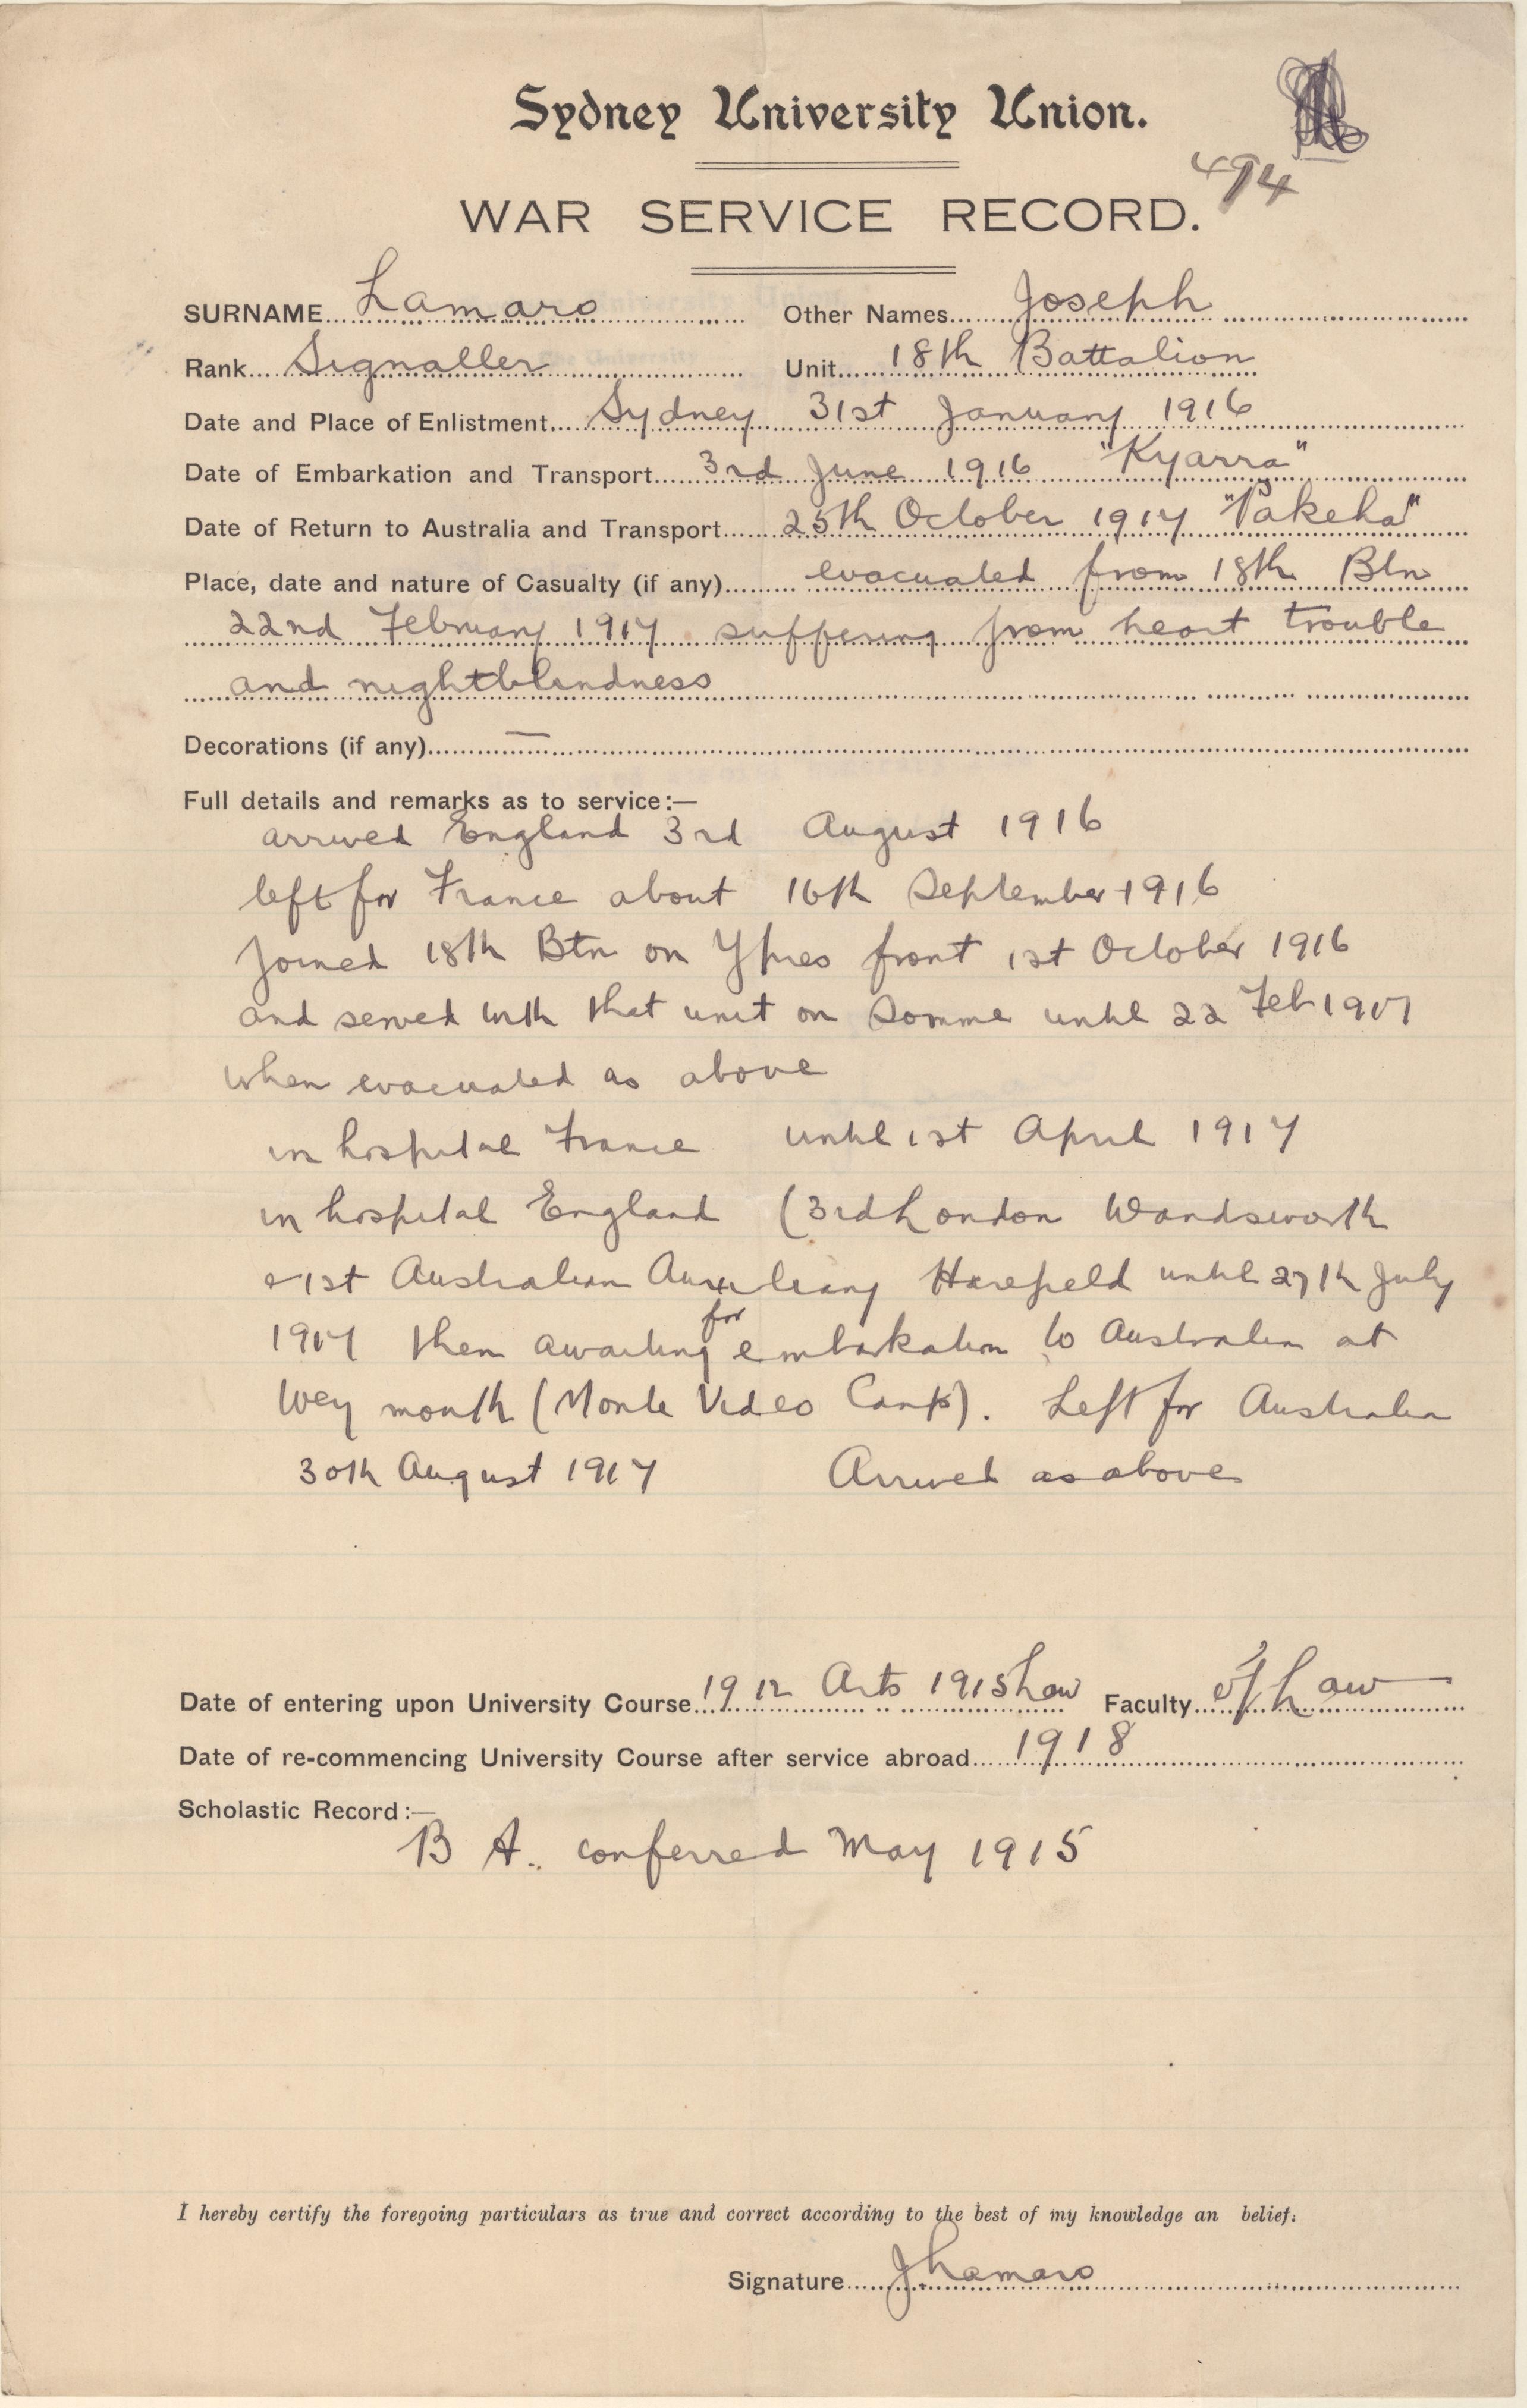 Sydney University Union.
494
WAR SERVICE RECORD.
SURNAME Lamaro Other Names Joseph
Rank Signaller Unit 18th Battalion
Date and Place of Enlistment Sydney 31st January 1916
Date of Embarkation and Transport 3rd June 1916 "Kyarra"
Date of Return to Australia and Transport 25th October 1917 "Pakeha"
Place, date and nature of Casualty (if any) evacuated from 18th Btn
22nd February 1917 suffering from heart trouble
and nightblindness
Decorations (if any) —
Full details and remarks as to service:—
arrived England 3rd August 1916
left for France about 16th September 1916
Joined 18th Btn on Ypres front 1st October 1916
and served with that unit on Somme until 22 Feb 1917
when evacuated as above
in hospital France until 1st April 1917
in hospital England (3rd London Wandsworth
& 1st Australian Auxileary Harefield until 27th July
1917 then awaiting for embarkation to Australia at
Weymouth (Monte Video Camp). Left for Australia
30th August 1917 Arrived as above
Date of entering upon University Course 1912 Arts 1915 Law Faculty of Law
Date of re-commencing University Course after service abroad 1918
Scholastic Record:—
B A. conferred May 1915
I hereby certify the foregoing particulars as true and correct according to the best of my knowledge an belief.
Signature JLamaro